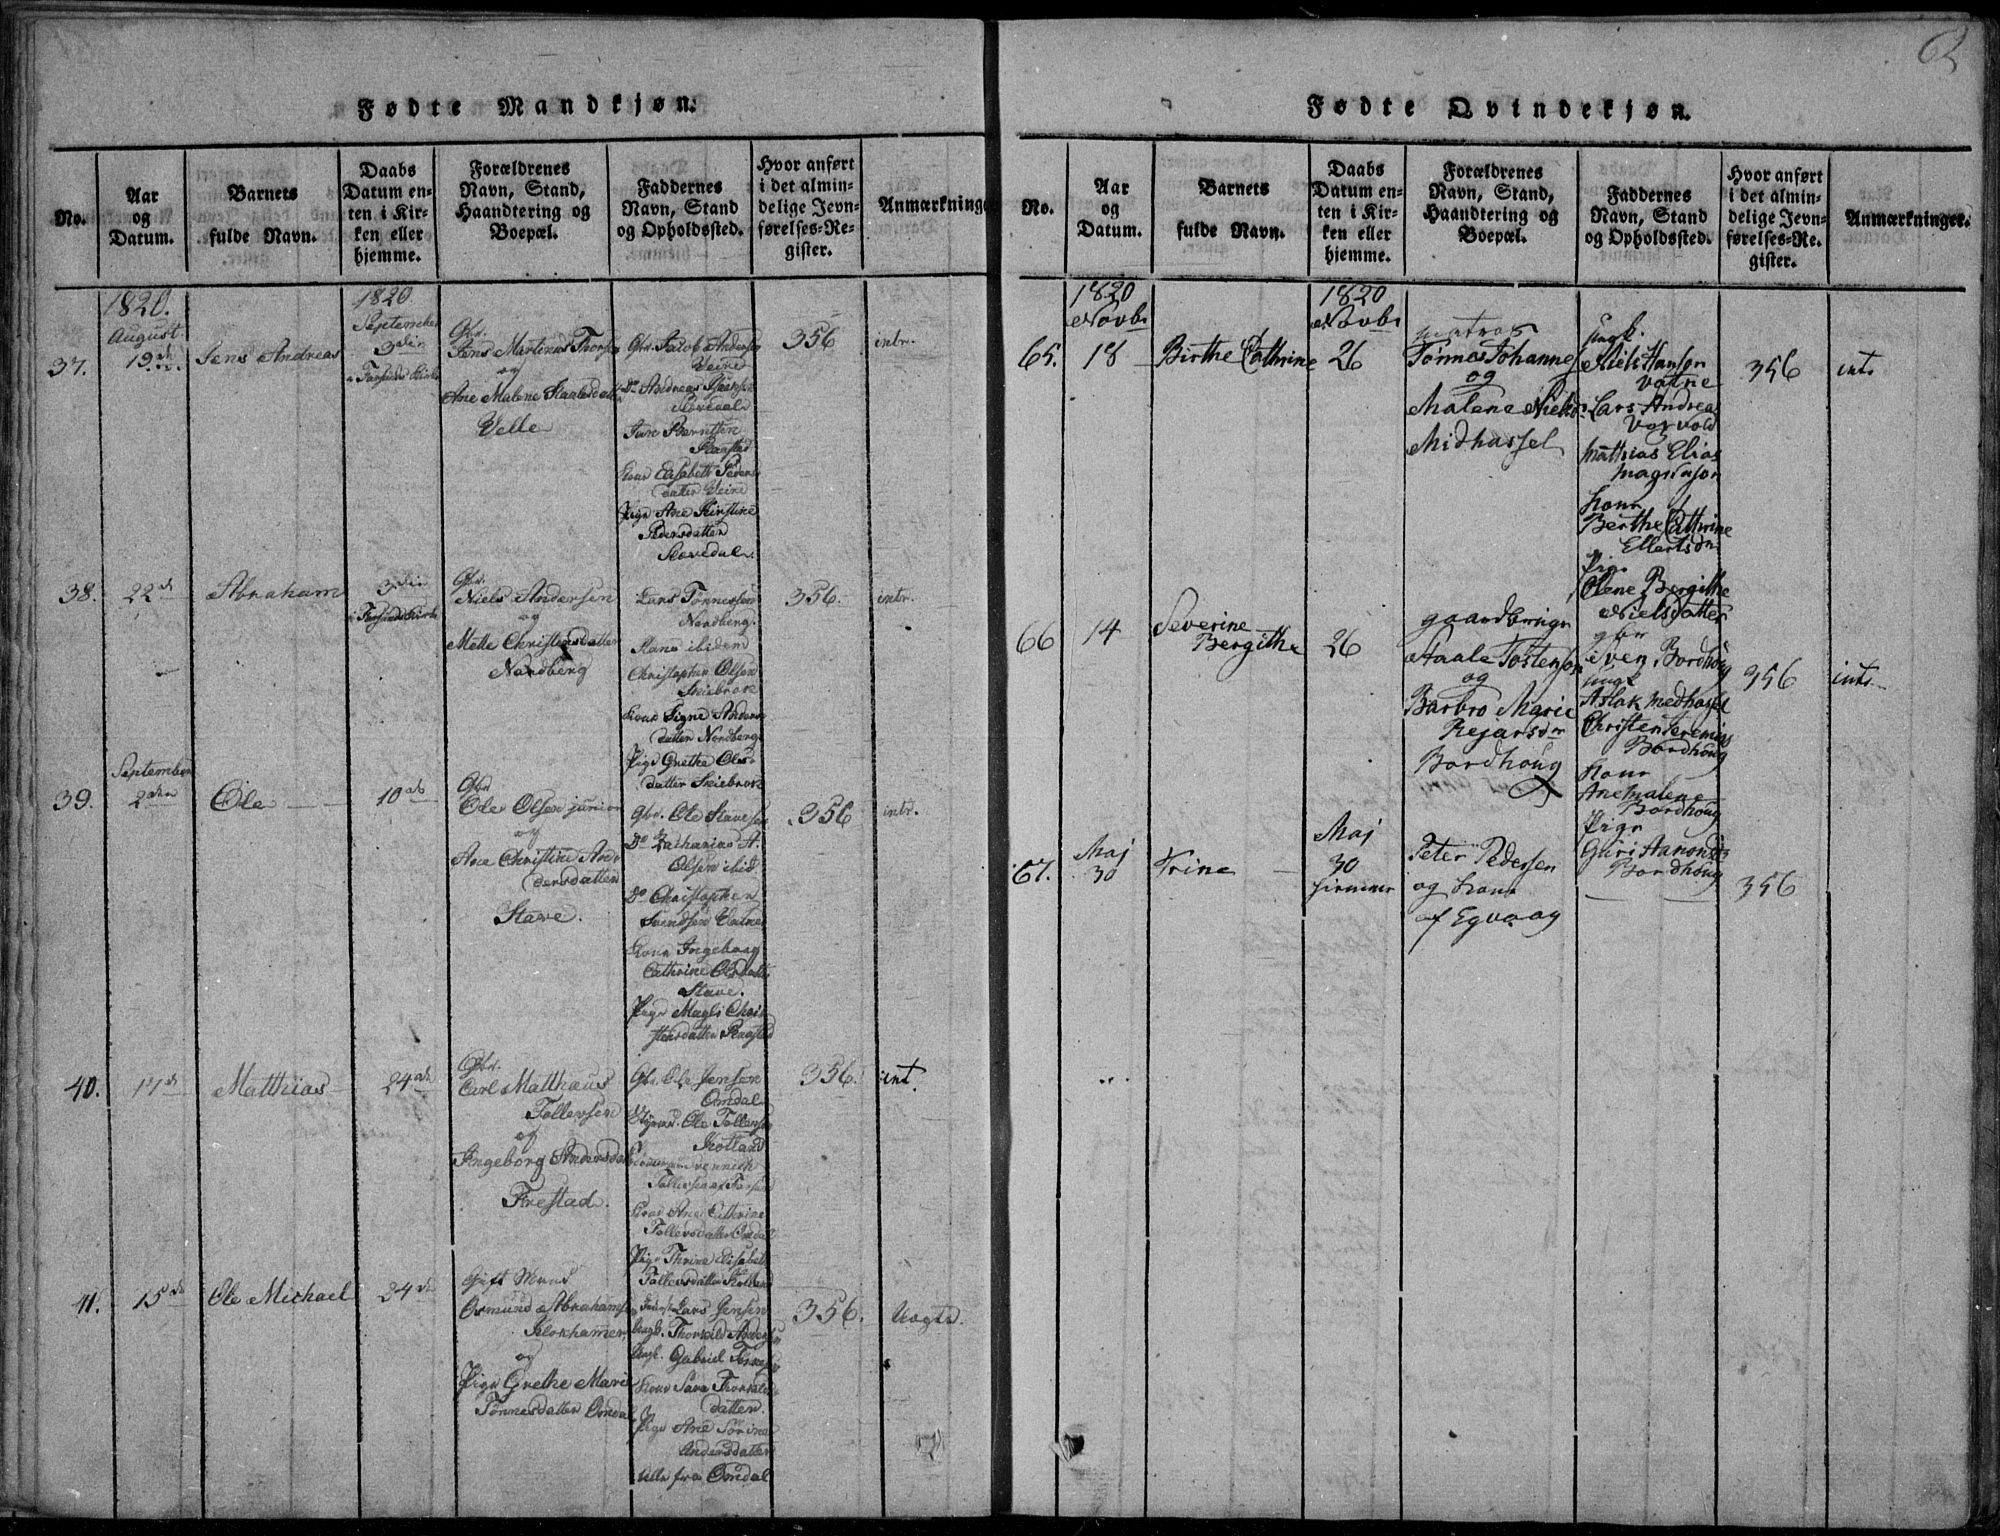 62
Fødte Mandkjøn.
No.
Aar
og
Datum.
Barnets
fulde Navn.
Daabs
Datum en-
ten i Kir-
ken eller
hjemme.
Forældrenes
Navn, Stand,
Haandtering og
Boepæl.
Faddernes
Navn, Stand
og Opholdssted.
Hvor anført
i det almin-
delige Jevn-
førelses-Re-
gister.
Anmærkninge
37.
1820.
August
19de
Jens Andreas
1820.
September
3die
Gbr.
Jens Martinus
og
Ane Malene
Velle
Gbr. Jacob Anders
Veine
Do Andreas
Jan Berntsen
Kone Elisabeth Peders
datter Veine
Pige Ane Kirstine
Pedersdatter
356
intr.
38.
22de
Abraham
3die
Gbr.
Niels Andersen
og
Mette Christensdatter
Nordberg
Lars Tønnessen
Nordberg.
Hans ibidem
Christopher Olsen
Skiebrok
Kone Signe Anders
datter Nordberg
Pige Grethe Ols
datter Skiebrok
356.
intr.
39.
September
2den
Ole
10de
Gbr
Ole Olsen junior
og
Ane Christine An
dersdatter
Stave.
Gbr. Ole
Do Zacharias A.
Olsen ibid
Do Christopher
Svendsen
Kone Ingeborg
Cathrine
Stave.
Pige Magli Chri
stensdatter
356
intr.
40.
17de
Matthias
24de
Gbr.
Carl Matthæus
Tollevsen
og
Ingeborg Andersda
Frestad.
Gbr. Ole Jensen
Omdal
Ole Tollevsen
Kone Ane Cathrine
Tollevsdatter Omdal
Pige Thrine Elisabeth
Tollevsdatter
356.
int.
41.
15de
Ole Michael
24de
Gift Mand
Osmund Abrahams
og
Pige Grethe Mari
Tønnesdatter Omdal
Lars Jensen
Ungk. Thorkild Anders
Ungk. Gabriel
Kone Sara
datter.
Pige Ane Sørine
Andersdatter
alle fra Omdal
356.
Uægte.
Fødte Qvindekjøn.
No.
Aar
og
Datum.
Barnets
fulde Navn.
Daabs
Datum en-
ten i Kir-
ken eller
hjemme.
Forældrenes
Navn, Stand,
Haandtering og
Boepæl.
Faddernes
Navn, Stand
og Opholdssted.
Hvor anført
i det almin-
delige Jevn-
førelses-Re-
gister.
Anmærkninger.
65.
1820
Novbr
18
Birthe Cathrine
1820
Novbr
26
matros
Tønnes Johanne
og
Malene Niels
Midhassel
ungk.
Niels Hanson
Vatne
Lars Andreas
Mathias Elias
Magnuson
kone
Berthe Cathrine
Ellertsdr
Pige
Olene Bergithe
Nielsdatter
356
intr
66
14
Severine
Bergithe
26
gaardbruger
Staale Tostenson
og
Barbro Marie
Rejarsdr
Bordhoug
gbr
Even Bordhoug
ungk
Aslak Medhassel
Christen Jeremias
Bordhoug
kone
Ane Malene
Bordhoug
Pige
Guri Aanonds
Bordhoug
356
intr
67.
Maj
30
Trine
Maj
30
hiemme
Peter Pedersen
og kone
af Egvaag
356